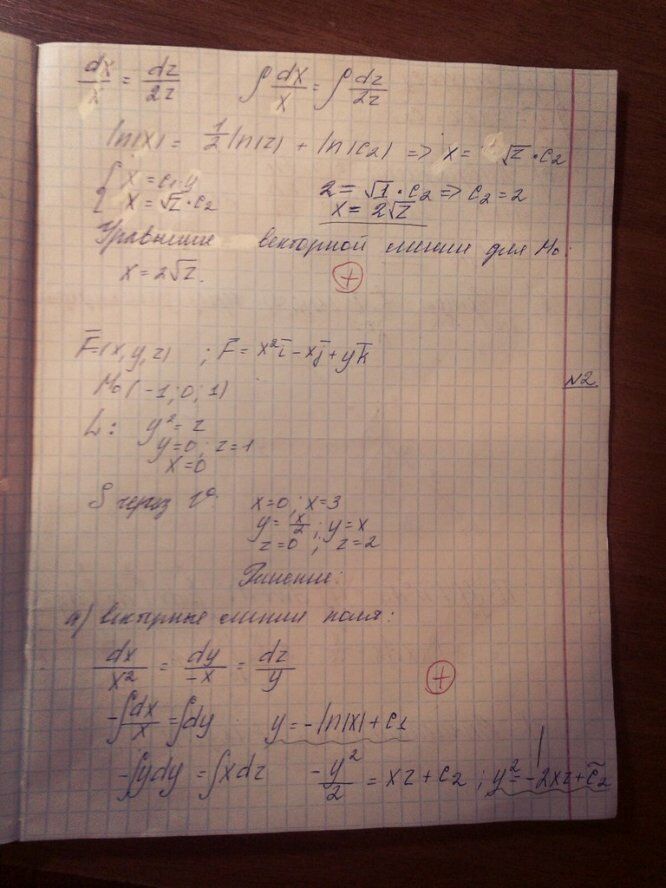 dx/x = dz/2z   ∫ dx/x = ∫ dz/2z
ln|x| = 1/2 ln|z| + ln|c₂| => x = √z · c₂
{ x = c₁y
x = √z · c₂   2 = √1 · c₂ => c₂ = 2
x = 2√z
Уравнение векторной линии для M₀:
x = 2√z.   +
F̄ = (x, y, z) ; F̄ = x²ī - xj̄ + yk̄
M₀(-1; 0; 1)   N2
L: y² = z
y=0; z=1
x=0
S через v⁰: x=0; x=3
y = x/2; y = x
z=0; z=2
Решение:
а) векторные линии поля:
dx/x² = dy/-x = dz/y   +
-∫ dx/x = ∫dy   y = -ln|x| + c₁
-∫ydy = ∫xdz   -y²/2 = xz + c₂ ; y² = -2xz + c̃₂